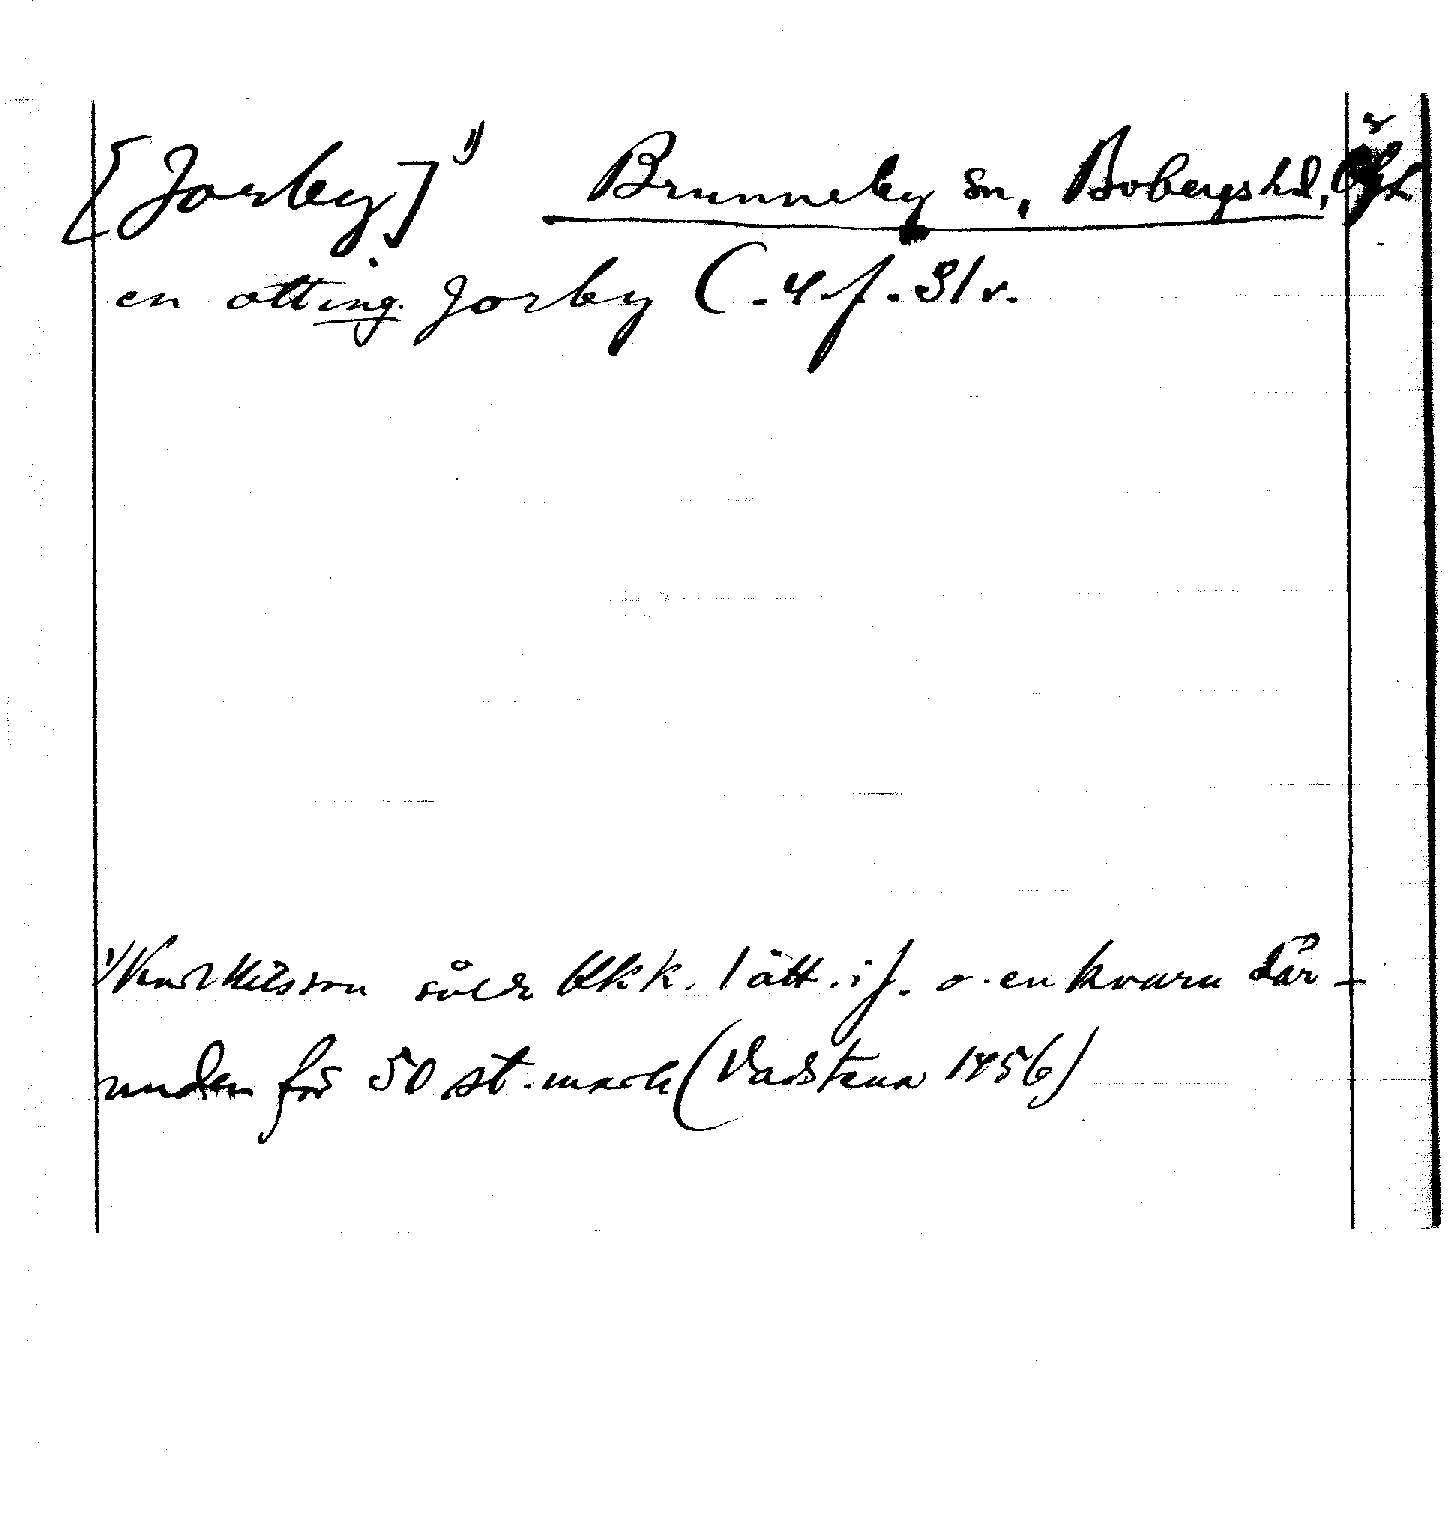 [Jorby] 1) Brunneby sn, Bobergs hd, Ögl
en otting Jorby C. 4. f. 31 v.
1) Knut Nilsson sålde Kkk. 1 ått. i J. o. en kvarn där-
unden för 50 st. mark (Vadstena 1456)